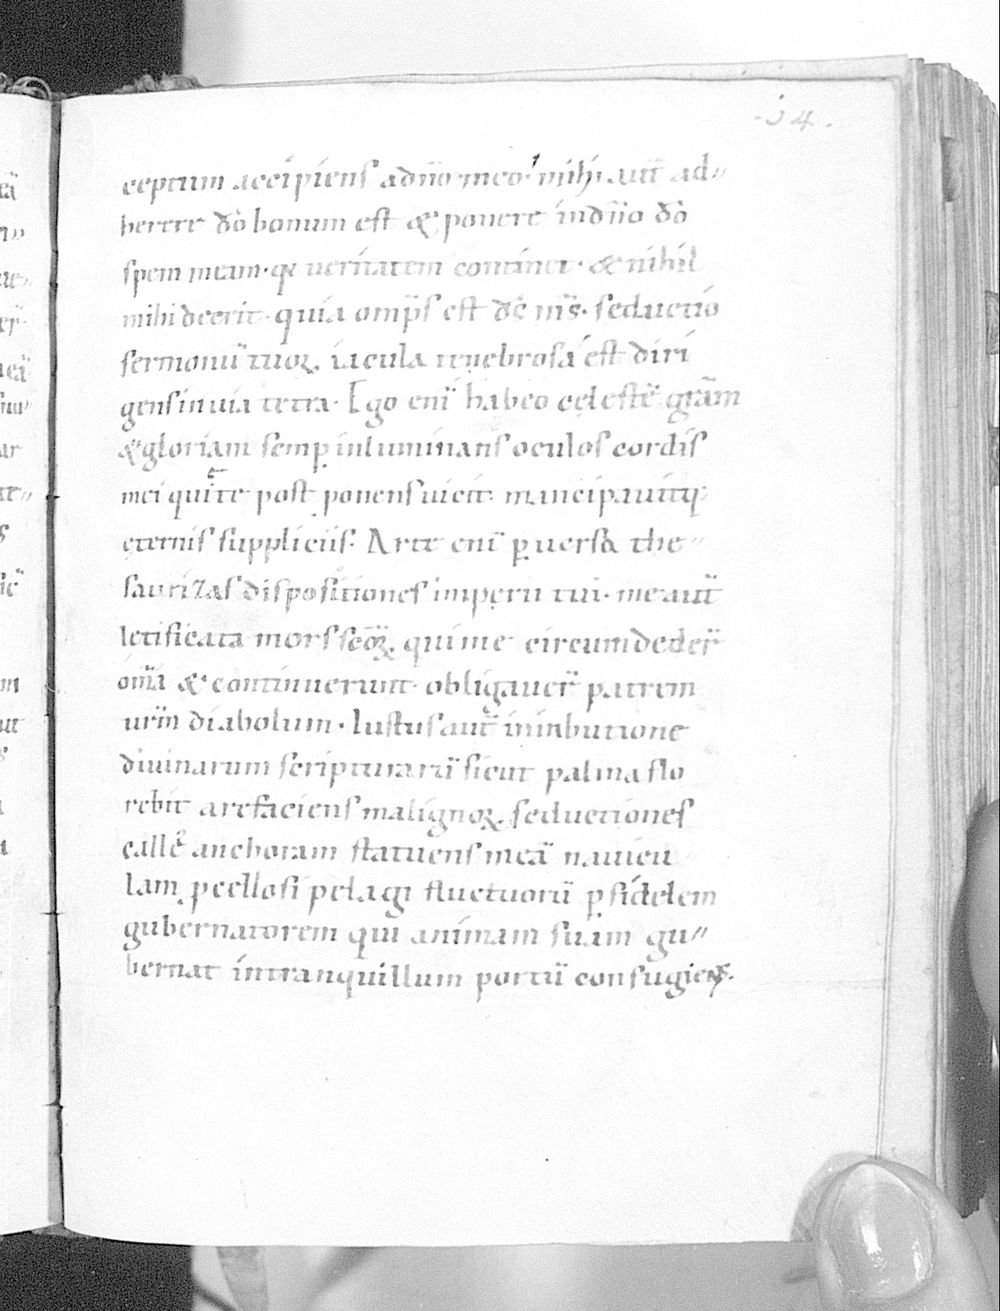 .54.
ceptum accipiens a dño meo. mihi aut̄ ad〃
herere d̄o bonum est & ponere in dño d̄o
spem meam. q̨ ueritatem continet. & nihil
mihi deerit. quia omp̄s est d̄s m̄s. seductio
sermonū tuoꝝ. iacula tenebrosa est diri
gens in uia tetra. Ego enī habeo cęlestē grām
& gloriam semp̲ inluminans oculos cordis
mei qui te post ponens uicit. mancipauitq;
ęternis suppliciis. Arte enī ꝑuersa the〃
saurizas dispositiones imperii tui. me aut̄
letificata mors sc̄oꝝ. qui me circumdeder̄
om̄a & continuerunt. obligauer̄ patrem
urm̄ diabolum. Iustus aut̄ in inbutione
diuinarum scripturarū sicut palma flo
rebit arefaciens malignoꝝ. seductiones
callē anchoram statuens meā nauicu
lam ꝓcellosi pelagi fluctuorū ꝑ fidelem
gubernatorem qui animam suam gu〃
bernat in tranquillum portū confugiens.